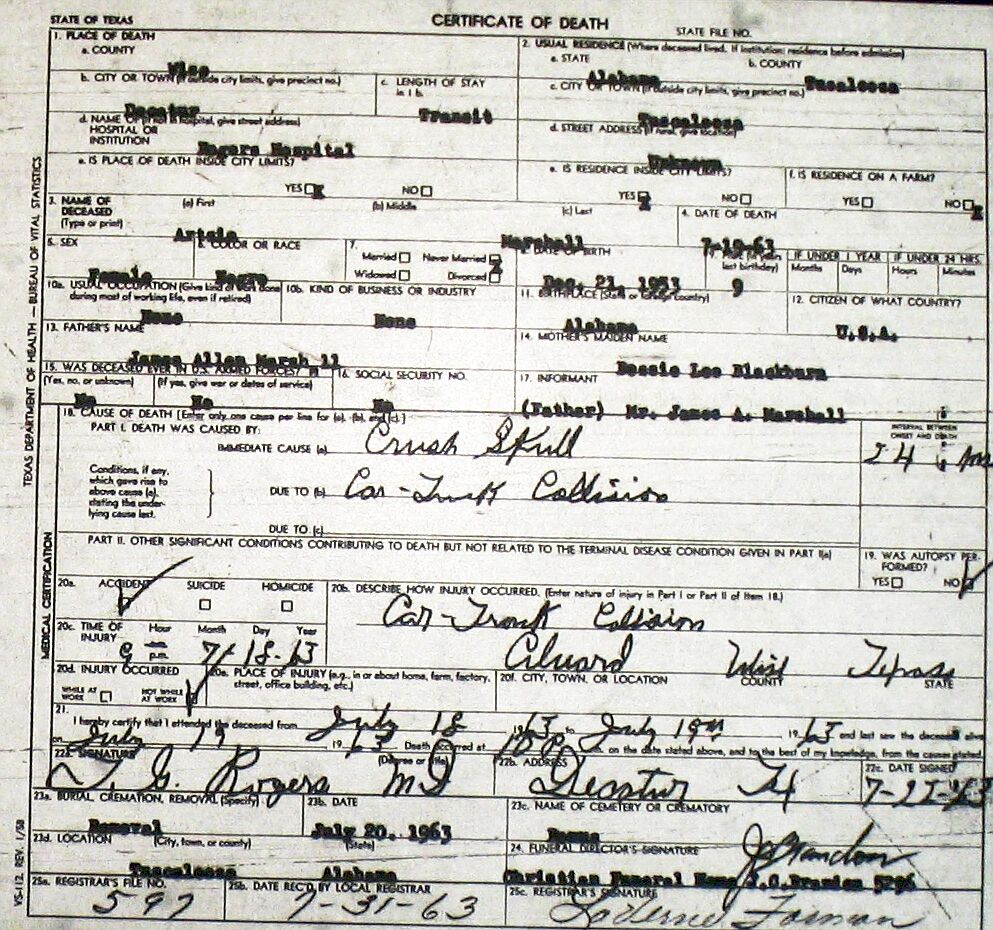 STATE OF TEXAS
CERTIFICATE OF DEATH
STATE FILE NO.
1. PLACE OF DEATH
a. COUNTY
Wise
2. USUAL RESIDENCE (Where deceased lived. If institution: residence before admission)
a. STATE
Alabama
b. COUNTY
Tuscaloosa
b. CITY OR TOWN (If outside city limits, give precinct no.)
Decatur
c. LENGTH OF STAY in 1 b.
Transit
c. CITY OR TOWN (If outside city limits, give precinct no.)
Tuscaloosa
d. NAME OF (If not in hospital, give street address) HOSPITAL OR INSTITUTION
Rogers Hospital
d. STREET ADDRESS (If rural, give location)
Unknown
e. IS PLACE OF DEATH INSIDE CITY LIMITS?
YES X NO
e. IS RESIDENCE INSIDE CITY LIMITS?
YES X NO
f. IS RESIDENCE ON A FARM?
YES NO X
3. NAME OF DECEASED (Type or print)
(a) First
(b) Middle
(c) Last
Artsie Marshall
4. DATE OF DEATH
7-19-63
5. SEX
Female
6. COLOR OR RACE
Negro
7.
Married Never Married X
Widowed Divorced
8. DATE OF BIRTH
Dec. 21, 1953
9. AGE (In years last birthday)
9
IF UNDER 1 YEAR
Months Days
IF UNDER 24 HRS.
Hours Minutes
10a. USUAL OCCUPATION (Give kind of work done during most of working life, even if retired)
None
10b. KIND OF BUSINESS OR INDUSTRY
None
11. BIRTHPLACE (State or foreign country)
Alabama
12. CITIZEN OF WHAT COUNTRY?
U.S.A.
13. FATHER'S NAME
James Allen Marsh ll
14. MOTHER'S MAIDEN NAME
Bessie Lee Blackburn
15. WAS DECEASED EVER IN U.S. ARMED FORCES?
(Yes, no, or unknown)
No
(If yes, give war or dates of service)
No
16. SOCIAL SECURITY NO.
No
17. INFORMANT
(Father) Mr. James A. Marshall
18. CAUSE OF DEATH [Enter only one cause per line for (a), (b), and (c).]
PART I. DEATH WAS CAUSED BY:
IMMEDIATE CAUSE (a) Crush Skull
INTERVAL BETWEEN ONSET AND DEATH
24
Conditions, if any, which gave rise to above cause (a), stating the underlying cause last.
DUE TO (b) Car-Truck Collision
DUE TO (c)
PART II. OTHER SIGNIFICANT CONDITIONS CONTRIBUTING TO DEATH BUT NOT RELATED TO THE TERMINAL DISEASE CONDITION GIVEN IN PART I(a)
19. WAS AUTOPSY PERFORMED?
YES NO
20a. ACCIDENT SUICIDE HOMICIDE
20b. DESCRIBE HOW INJURY OCCURRED. (Enter nature of injury in Part I or Part II of Item 18.)
Car-Truck Collision
20c. TIME OF INJURY
Hour Month Day Year
p.m. 7-18-63
20d. INJURY OCCURRED
WHILE AT WORK NOT WHILE AT WORK
20e. PLACE OF INJURY (e.g., in or about home, farm, factory, street, office building, etc.)
20f. CITY, TOWN, OR LOCATION COUNTY STATE
Alvord Wise Texas
21.
I hereby certify that I attended the deceased from July 18 1963 to July 19th 1963 and last saw the deceased alive
on July 19 1963 Death occurred at 10 P m. on the date stated above, and to the best of my knowledge, from the causes stated.
22a. SIGNATURE (Degree or title)
T. G. Rogers MD
22b. ADDRESS
Decatur Tx
22c. DATE SIGNED
7-22-63
23a. BURIAL, CREMATION, REMOVAL (Specify)
Removal
23b. DATE
July 20. 1963
23c. NAME OF CEMETERY OR CREMATORY
23d. LOCATION (City, town, or county) (State)
Tuscaloosa Alabama
24. FUNERAL DIRECTOR'S SIGNATURE
Christian Funeral Home J.O.Brandon 5296
25a. REGISTRAR'S FILE NO.
597
25b. DATE REC'D BY LOCAL REGISTRAR
7-31-63
25c. REGISTRAR'S SIGNATURE
LaVerne Forman
TEXAS DEPARTMENT OF HEALTH — BUREAU OF VITAL STATISTICS
MEDICAL CERTIFICATION
VS-112 REV. 1/58